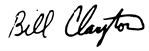 Bill Clayton